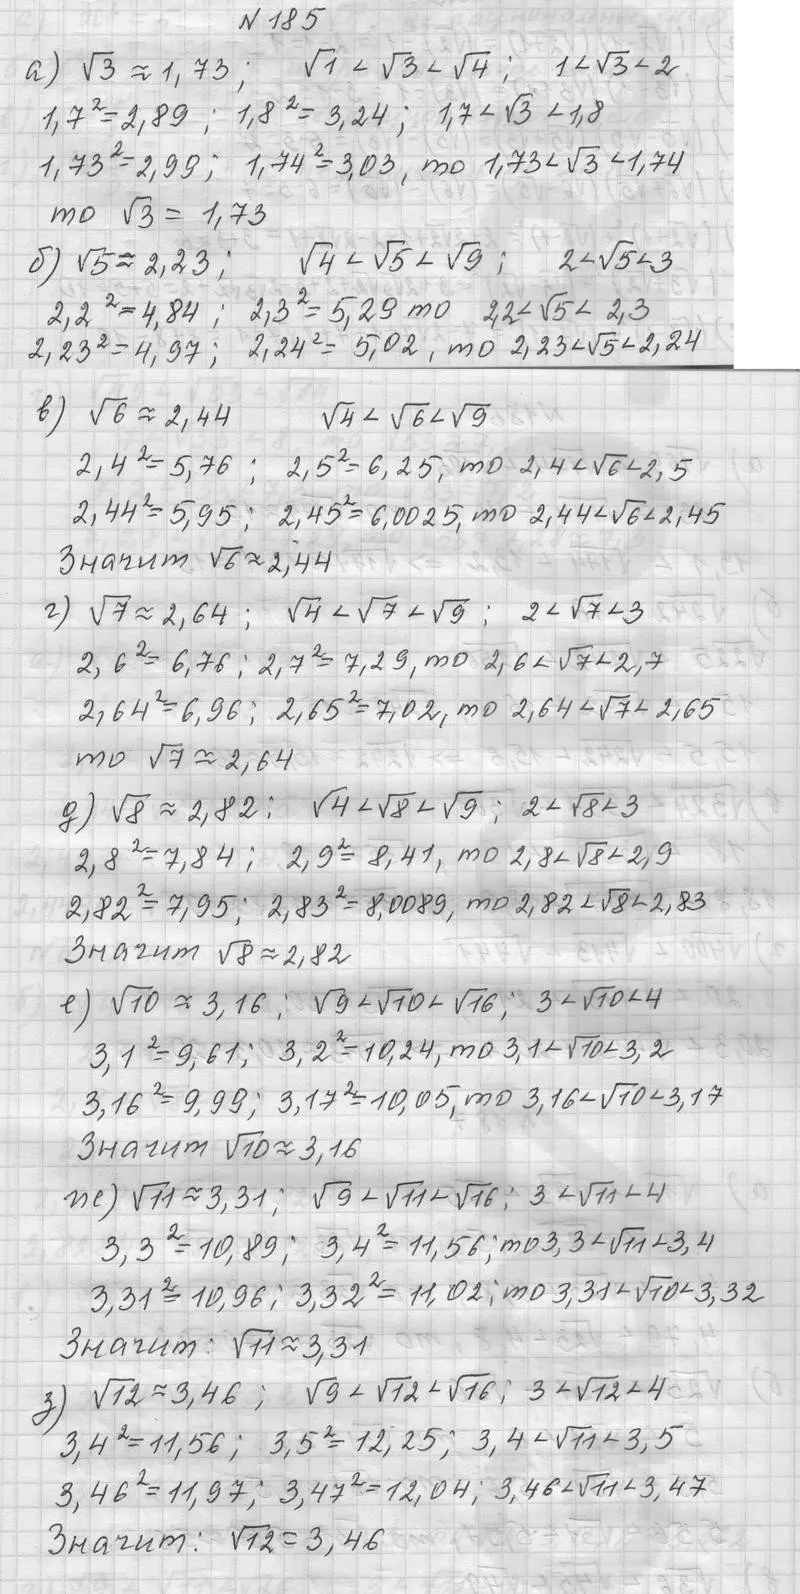 N 185
а) √3 ≈ 1,73; √1 < √3 < √4; 1 < √3 < 2
1,7² = 2,89; 1,8² = 3,24; 1,7 < √3 < 1,8
1,73² = 2,99; 1,74² = 3,03, то 1,73 < √3 < 1,74
то √3 = 1,73
б) √5 ≈ 2,23; √4 < √5 < √9; 2 < √5 < 3
2,2² = 4,84; 2,3² = 5,29 то 2,2 < √5 < 2,3
2,23² = 4,97; 2,24² = 5,02, то 2,23 < √5 < 2,24
в) √6 ≈ 2,44 √4 < √6 < √9
2,4² = 5,76; 2,5² = 6,25, то 2,4 < √6 < 2,5
2,44² = 5,95; 2,45² = 6,0025, то 2,44 < √6 < 2,45
Значит √6 ≈ 2,44
г) √7 ≈ 2,64; √4 < √7 < √9; 2 < √7 < 3
2,6² = 6,76; 2,7² = 7,29, то 2,6 < √7 < 2,7
2,64² = 6,96; 2,65² = 7,02, то 2,64 < √7 < 2,65
то √7 ≈ 2,64
д) √8 ≈ 2,82; √4 < √8 < √9; 2 < √8 < 3
2,8² = 7,84; 2,9² = 8,41, то 2,8 < √8 < 2,9
2,82² = 7,95; 2,83² = 8,0089, то 2,82 < √8 < 2,83
Значит √8 ≈ 2,82
е) √10 ≈ 3,16; √9 < √10 < √16; 3 < √10 < 4
3,1² = 9,61; 3,2² = 10,24, то 3,1 < √10 < 3,2
3,16² = 9,99; 3,17² = 10,05, то 3,16 < √10 < 3,17
Значит √10 ≈ 3,16
ж) √11 ≈ 3,31; √9 < √11 < √16; 3 < √11 < 4
3,3² = 10,89; 3,4² = 11,56; то 3,3 < √11 < 3,4
3,31² = 10,96; 3,32² = 11,02; то 3,31 < √10 < 3,32
Значит: √11 ≈ 3,31
з) √12 ≈ 3,46; √9 < √12 < √16; 3 < √12 < 4
3,4² = 11,56; 3,5² = 12,25; 3,4 < √11 < 3,5
3,46² = 11,97; 3,47² = 12,04; 3,46 < √11 < 3,47
Значит: √12 = 3,46